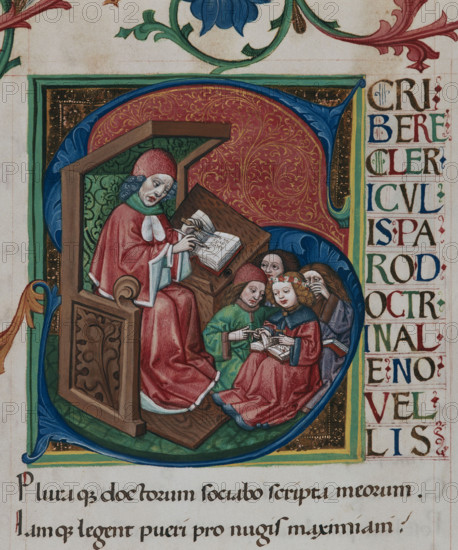 S
CRI
BERE
CLER
ICVL
IS·PA
RO·D
OCTR
INAL
E·NO
VEL
LIS
Pluraqꝫ doctorum sociabo scripta meorum.
Iamqꝫ legent pueri pro nugis maximiani: